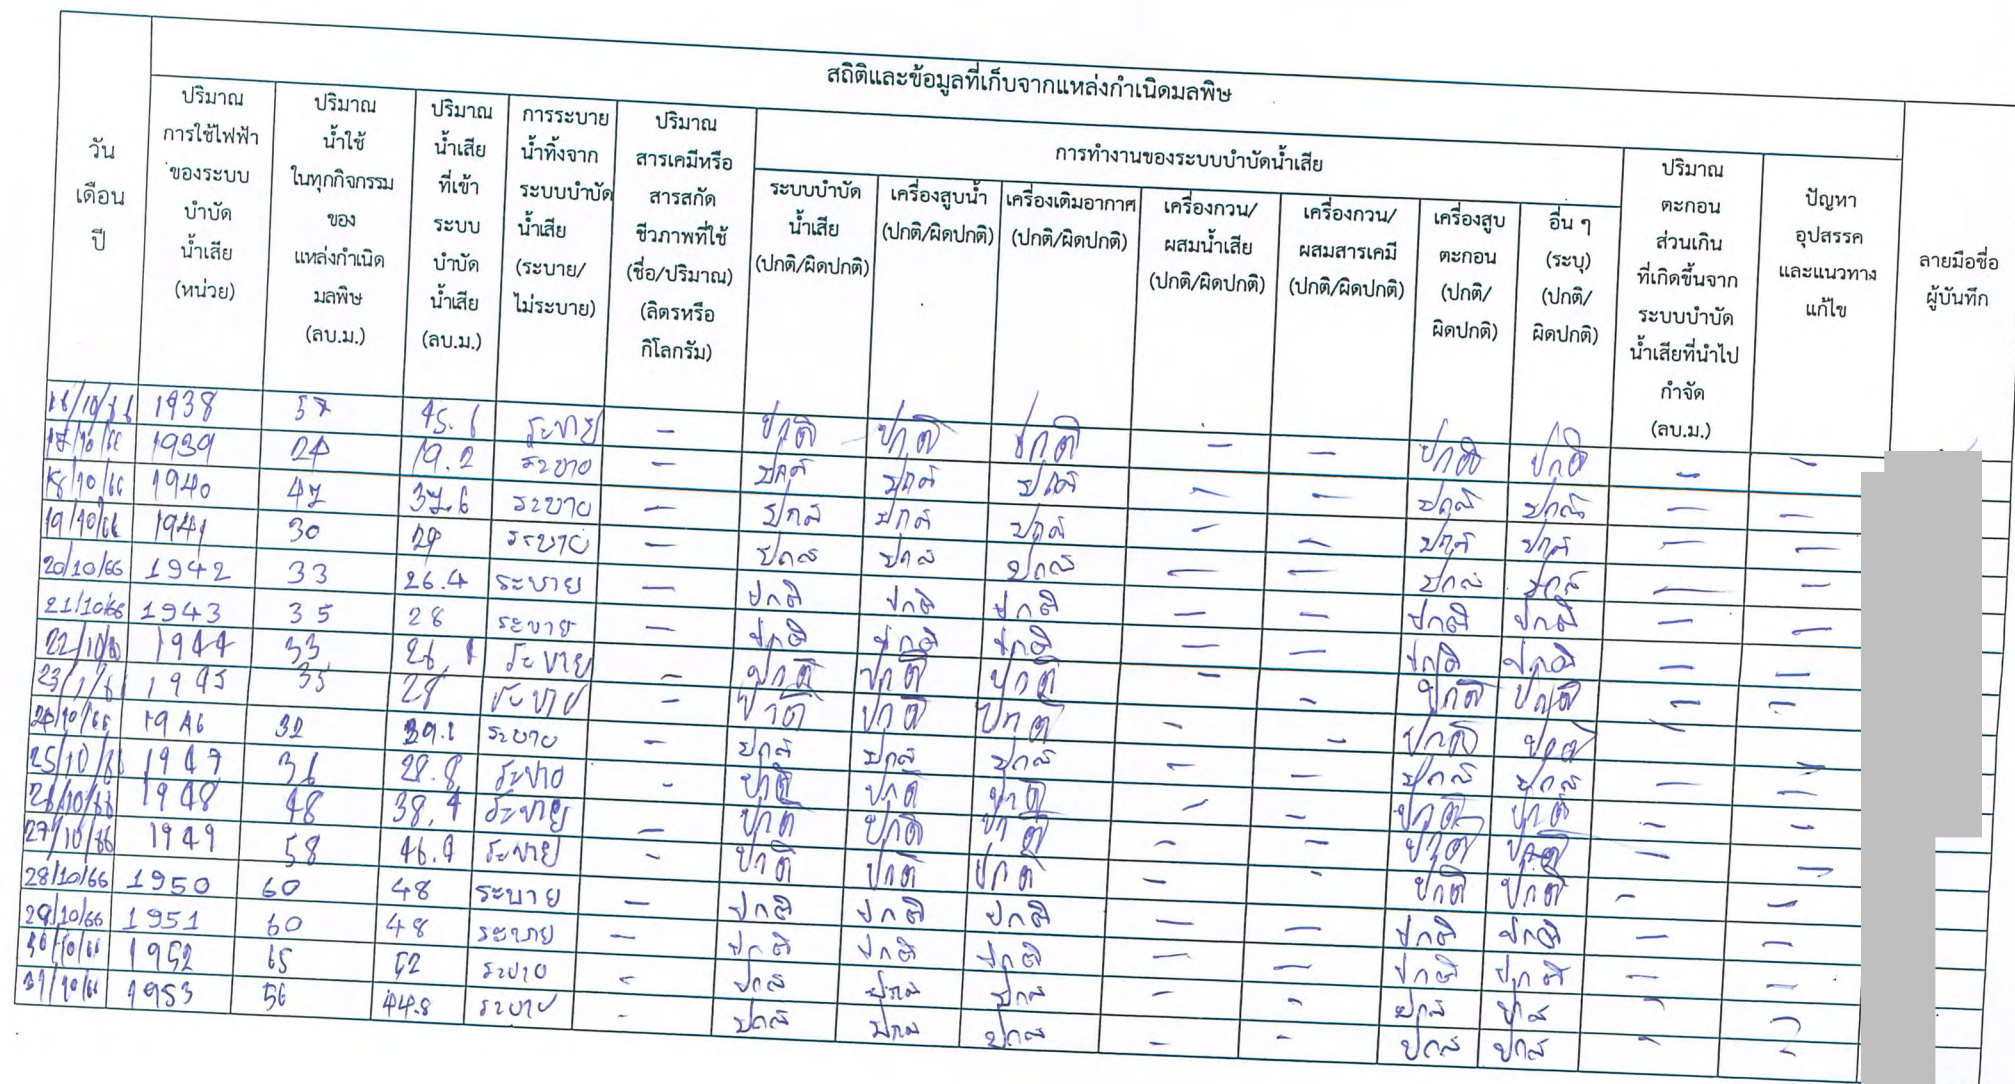 สถิติและข้อมูลที่เก็บจากแหล่งกำเนิดมลพิษ
วัน
เดือน
ปี
ปริมาณ
การใช้ไฟฟ้า
ของระบบ
บำบัด
น้ำเสีย
(หน่วย)
ปริมาณ
น้ำใช้
ในทุกกิจกรรม
ของ
แหล่งกำเนิด
มลพิษ
(ลบ.ม.)
ปริมาณ
น้ำเสีย
ที่เข้า
ระบบ
บำบัด
น้ำเสีย
(ลบ.ม.)
การระบาย
น้ำทิ้งจาก
ระบบบำบัด
น้ำเสีย
(ระบาย/
ไม่ระบาย)
ปริมาณ
สารเคมีหรือ
สารสกัด
ชีวภาพที่ใช้
(ชื่อ/ปริมาณ)
(ลิตรหรือ
กิโลกรัม)
การทำงานของระบบบำบัดน้ำเสีย
ระบบบำบัด
น้ำเสีย
(ปกติ/ผิดปกติ)
เครื่องสูบน้ำ
(ปกติ/ผิดปกติ)
เครื่องเติมอากาศ
(ปกติ/ผิดปกติ)
เครื่องกวน/
ผสมน้ำเสีย
(ปกติ/ผิดปกติ)
เครื่องกวน/
ผสมสารเคมี
(ปกติ/ผิดปกติ)
เครื่องสูบ
ตะกอน
(ปกติ/
ผิดปกติ)
อื่น ๆ
(ระบุ)
(ปกติ/
ผิดปกติ)
ปริมาณ
ตะกอน
ส่วนเกิน
ที่เกิดขึ้นจาก
ระบบบำบัด
น้ำเสียที่นำไป
กำจัด
(ลบ.ม.)
ปัญหา
อุปสรรค
และแนวทาง
แก้ไข
ลายมือชื่อ
ผู้บันทึก
16/10/66 1938 57 45.6 ระบาย - ปกติ ปกติ ปกติ - - ปกติ ปกติ - -
17/10/66 1939 24 19.2 ระบาย - ปกติ ปกติ ปกติ - - ปกติ ปกติ - -
18/10/66 1940 47 37.6 ระบาย - ปกติ ปกติ ปกติ - - ปกติ ปกติ - -
19/10/66 1941 30 24 ระบาย - ปกติ ปกติ ปกติ - - ปกติ ปกติ - -
20/10/66 1942 33 26.4 ระบาย - ปกติ ปกติ ปกติ - - ปกติ ปกติ - -
21/10/66 1943 35 28 ระบาย - ปกติ ปกติ ปกติ - - ปกติ ปกติ - -
1944 33 26.4 ระบาย - ปกติ ปกติ ปกติ - - ปกติ ปกติ - -
1945 35 28 ระบาย - ปกติ ปกติ ปกติ - - ปกติ ปกติ - -
24/10/66 1946 32 ระบาย - ปกติ ปกติ ปกติ - - ปกติ ปกติ - -
25/10/66 1947 36 28.8 ระบาย - ปกติ ปกติ ปกติ - - ปกติ ปกติ - -
26/10/66 1948 48 38.4 ระบาย - ปกติ ปกติ ปกติ - - ปกติ ปกติ - -
27/10/66 1949 58 46.4 ระบาย - ปกติ ปกติ ปกติ - - ปกติ ปกติ - -
28/10/66 1950 60 48 ระบาย - ปกติ ปกติ ปกติ - - ปกติ ปกติ - -
29/10/66 1951 60 48 ระบาย - ปกติ ปกติ ปกติ - - ปกติ ปกติ - -
30/10/66 1952 65 52 ระบาย - ปกติ ปกติ ปกติ - - ปกติ ปกติ - -
31/10/66 1953 56 44.8 ระบาย - ปกติ ปกติ ปกติ - - ปกติ ปกติ - -